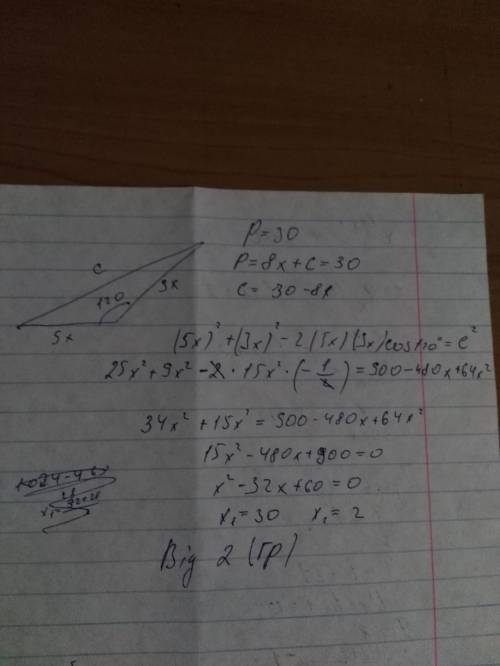 P=30
P=8x+c=30
c= 30-8x
c
120
3x
5x
(5x)²+(3x)²-2(5x)(3x)cos120°=c²
25x²+9x²-2·15x²·(-1/2)=900-480x+64x²
34x²+15x²=900-480x+64x²
15x²-480x+900=0
x²-32x+60=0
x₁=30 x₁=2
Від 2 (Гр)